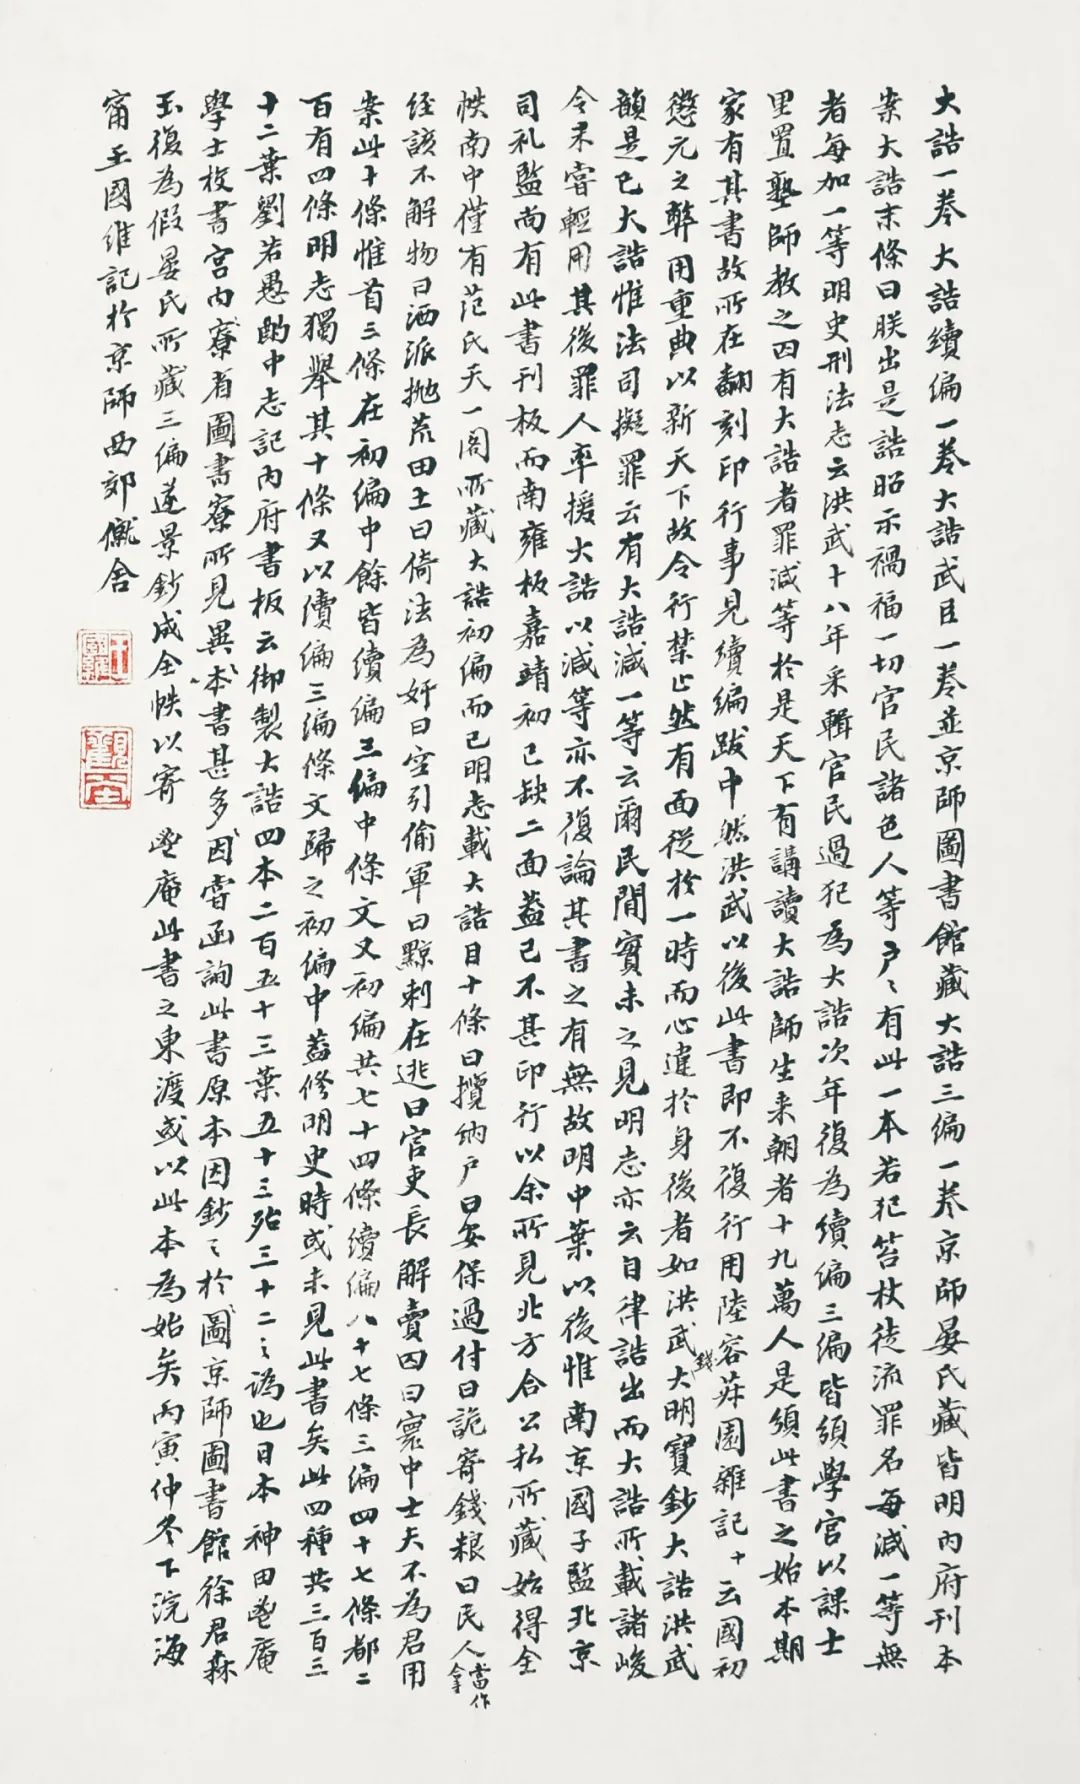 大誥一卷大誥續編一卷大誥武臣一卷並京師圖書館藏大誥三編一卷京師晏氏藏皆明內府刊本
案大誥末條曰朕出是誥昭示禍福一切官民諸色人等戶〻有此一本若犯笞杖徒流罪名每減一等無
者每加一等明史刑法志云洪武十八年采輯官民過犯為大誥次年復為續編三編皆頒學官以課士
里置塾師教之囚有大誥者罪減等於是天下有講讀大誥師生来朝者十九萬人是頒此書之始本期
家有其書故所在翻刻印行事見續編跋中然洪武以後此書即不復行用陸容菽園雜記十云國初
懲元之弊用重典以新天下故令行禁止然有面從於一時而心違於身後者如洪武錢大明寶鈔大誥洪武
韻是已大誥惟法司擬罪云有大誥減一等云爾民間實未之見明志亦云自律誥出而大誥所載諸峻
令未嘗輕用其後罪人率援大誥以減等亦不復論其書之有無故明中葉以後惟南京國子監北京
司礼監尚有此書刊板而南雍板嘉靖初已缺二面蓋已不甚印行以余所見北方合公私所藏始得全
帙南中僅有范氏天一閣所藏大誥初編而已明志載大誥目十條曰攬納戶曰安保過付曰詭寄錢粮曰民人當作拿
经該不解物曰洒派抛荒田土曰倚法為奸曰空引偷軍曰黥刺在逃曰官吏長解賣囚曰寰中士夫不為君用
案此十條惟首三條在初編中餘皆續編三編中條文又初編共七十四條續編八十七條三編四十七條都二
百有四條明志獨舉其十條又以續編三編條文歸之初編中蓋修明史時或未見此書矣此四種共三百三
十二葉劉若愚酌中志記內府書板云御製大誥四本二百五十三葉五十三殆三十二之譌也日本神田鬯庵
學士校書宮內寮省圖書寮所見異本書甚多因嘗函詢此書原本因鈔之於圖京師圖書館徐君森
玉復為假晏氏所藏三編遂景鈔成全帙以寄鬯庵此書之東渡或以此本為始矣丙寅仲冬下浣海
甯王國維記於京師西郊僦舍
王國維
觀堂